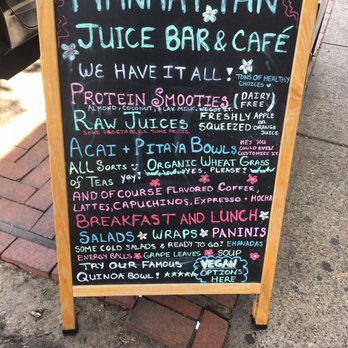 MANHATTAN
JUICE BAR & CAFÉ
WE HAVE IT ALL!
TONS OF HEALTHY
CHOICES
PROTEIN SMOOTIES (DAIRY FREE)
ALMOND + COCONUT, FLAX MILK,
RAW JUICES
SOME VEGETABLES. SOME FRUITS.
FRESHLY SQUEEZED
APPLE OR ORANGE JUICE
ACAI + PITAYA BOWLS
HEY YOU COULD EVEN CUSTOMIZE IT.
ALL SORTS OF TEAS yay!
ORGANIC WHEAT GRASS
YES, PLEASE!
AND OF COURSE FLAVORED COFFEE,
LATTES, CAPUCHINOS, EXPRESSO + MOCHA
BREAKFAST AND LUNCH
SALADS WRAPS PANINIS
SOME COLD SALADS & READY TO GO! EMANADAS
ENERGY BALLS GRAPE LEAVES SOUP
TRY OUR FAMOUS
QUINOA BOWL!
VEGAN
OPTIONS
HERE